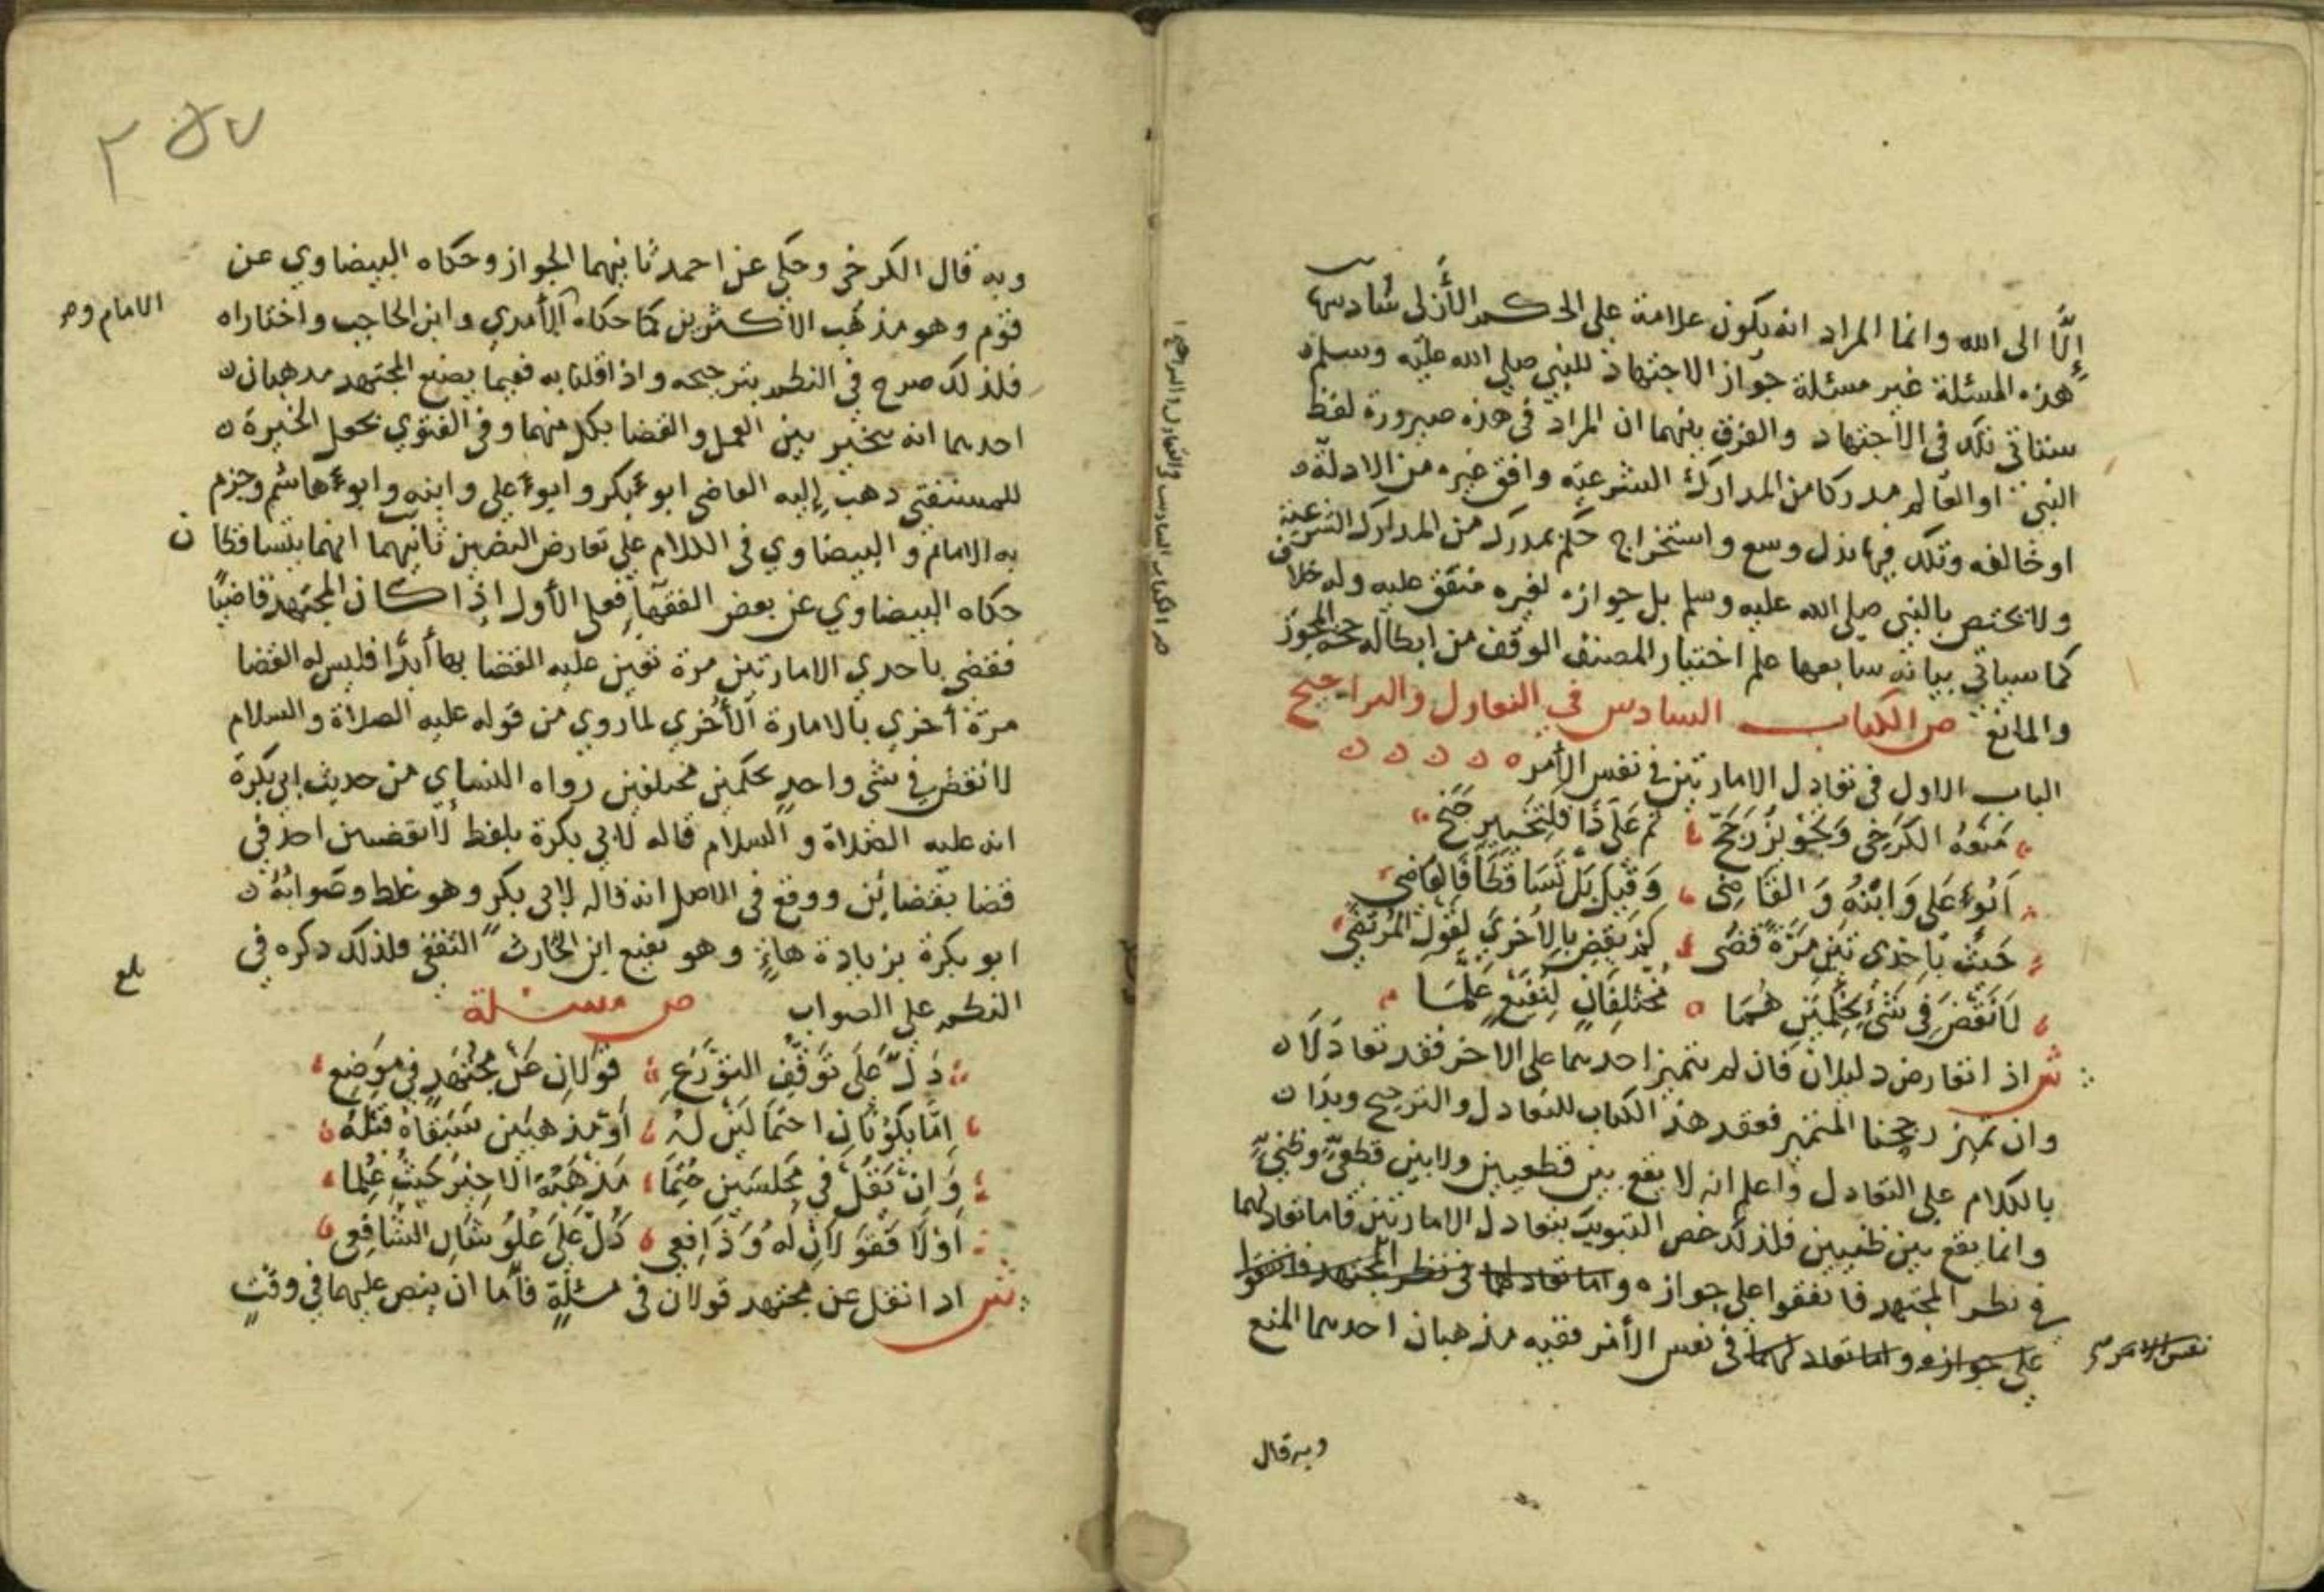 إلَّا الى الله وانما المراد انه يكون علامة على الحكم الأزلى سادسها
هذه المسئلة غير مسئلة جواز الاجتهاد للنبي صلى الله عليه وسلم
ستاتي تلك في الاجتهاد والفرق بينهما ان المراد في هذه صيرورة لفظ
النبي او العالم مدركا من المدارك الشرعيه وافق غيره من الادلة
او خالفه وتلك فيها بذل وسع واستخراج حكم بمدرك من المدارك الشرعية
ولا تختص بالنبي صلى الله عليه وسلم بل جوازه لغيره متفق عليه وله خلاف
كما سياتي بيانه سابعها علم اختيار المصنف الوقف من ابطاله حجة المجوز
والمانع ص الكتاب السادس في التعادل والتراجيح
الباب الاول في تعادل الامارتين في نفس الأمر
مَنَعَهُ الكَرخِي وَتَجْوِيْزٌ رَجَحّ ثم عَلَى ذَا فَلِتَخْيِيرٍ جَنَحْ
اَبُو عَلى وَابْنُهُ وَالقَاضِى وَقيلَ بَلْ تَسَاقَطَا فَالقَاضي
حَيثُ بِاحْدى تَيْنِ مَرّةً قَضَى لَمْ يَقضِ بِالأخْرَى لقَولِ المُرتَضَى
لَا تَقْضِ في شَئٍ بِحُكْمَيْنِ هُمَا مُختَلِفَانِ لِنُفَيْعٍ عَلَّمَا
ش اذا تعارض دليلان فان لم يتميز احدهما على الاخر فقد تعادلا
وان تميز رجحنا المتميز فعقد هذا الكتاب للتعادل والترجيح وبدا
بالكلام على التعادل واعلم انه لا يقع بين قطعيين ولا بين قطعيٍّ وظنيٍّ
وانما يقع بين ظنيين فلذلك خص التبويب بتعادل الامارتين فاما تعادلهما
في نظر المجتهد فاتفقوا على جوازه واما تعادلهما في نظر المجتهد فاتفقوا
على جوازه واما تعادلهما في نفس الأمر ففيه مذهبان احدهما المنع
نفس الامر
وبه قال
ص الكتاب السادس في التعادل والتراجيح
٢٥٧
وبه قال الكرخي وحكي عن احمد ثانيهما الجواز وحكاه البيضاوي عن
قوم وهو مذهب الاكثرين كما حكاه الآمدي وابن الحاجب واختاراه
الامام و
فلذلك صرح في النظم بترجيحه واذا قلنا به فعيما يصنع المجتهد مذهبان
احدهما انه يتخير بين العمل والقضا بكل منهما وفي الفتوي تحعل الخيرة
للمستفتي دهب إليه القاضي ابو بكر وابو علي وابنه وابو هاشم وجزم
به الامام والبيضاوي في الكلام على تعارض النصين ثانيهما انهما يتساقطا ن
حكاه البيضاوي عن بعض الفقهآء فعلى الأول إذا كان المجتهد قاضيًا
فقضي باحدي الامارتين مرة تعين عليه القضا بها أبدًا فليس له القضا
مرّة أخرى بالامارة الأخرى لما روي من قوله عليه الصلاة والسلام
لا تقض في شي واحدٍ بحكمين مختلفين رواه النساي من حديث ابي بكرة
انه عليه الصلاة والسلام قاله لابي بكرة بلفظ لا يقضين احد في
قضا بقضائين ووقع في الاصل انه قاله لابى بكر وهو غلط وصوابُهُ
ابو بكرة بزيادة هاءٍ وهو نفيع ابن الحارث الثقفي ولذلك دكره في
بلغ
النظم على الصواب ص مسئلة
دَلَّ عَلَى تَوَقُّفِ التوَرُّعِ قوْلانِ عَنْ مُجتَهدٍ فى مَوضِعِ
اِمَّا يَكُوْنَانِ احتمالَيْنِ لَهُ أوْ مَذهَبَين سَبَقَاهُ قَبْلَهُ
وَانْ نَقُلْ في مَجلسَينِ حُتِمَا مَذْهَبُهُ الاخِيْرُ حَيْثُ عُلِما
اَوْلَا فَقَوْلَانِ لَهُ وَذَا فعي دَلَّ عَلَى عُلُوِ شَانِ الشّافِعى
ش ادا نقل عن مجتهد قولان في مسئلةٍ فأما ان ينص عليهما في وقتٍ